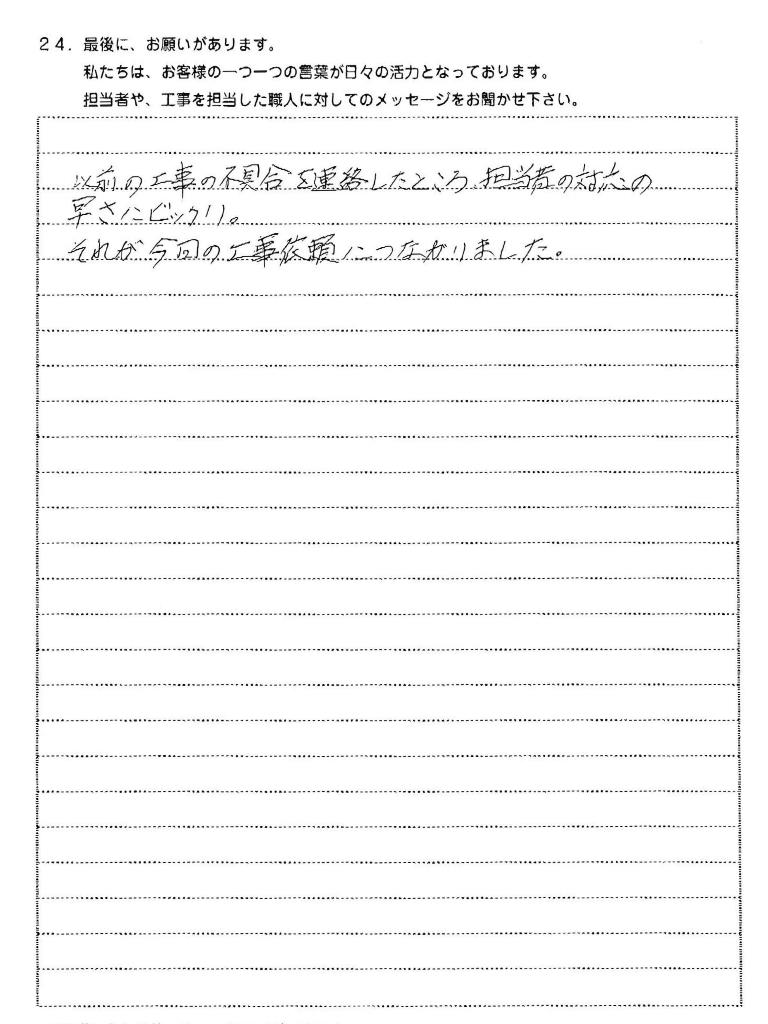 24. 最後に、お願いがあります。
私たちは、お客様の一つ一つの言葉が日々の活力となっております。
担当者や、工事を担当した職人に対してのメッセージをお聞かせ下さい。
以前の工事の不具合を連絡したところ、担当者の対応の
早さにビックリ。
それが今回の工事依頼につながりました。